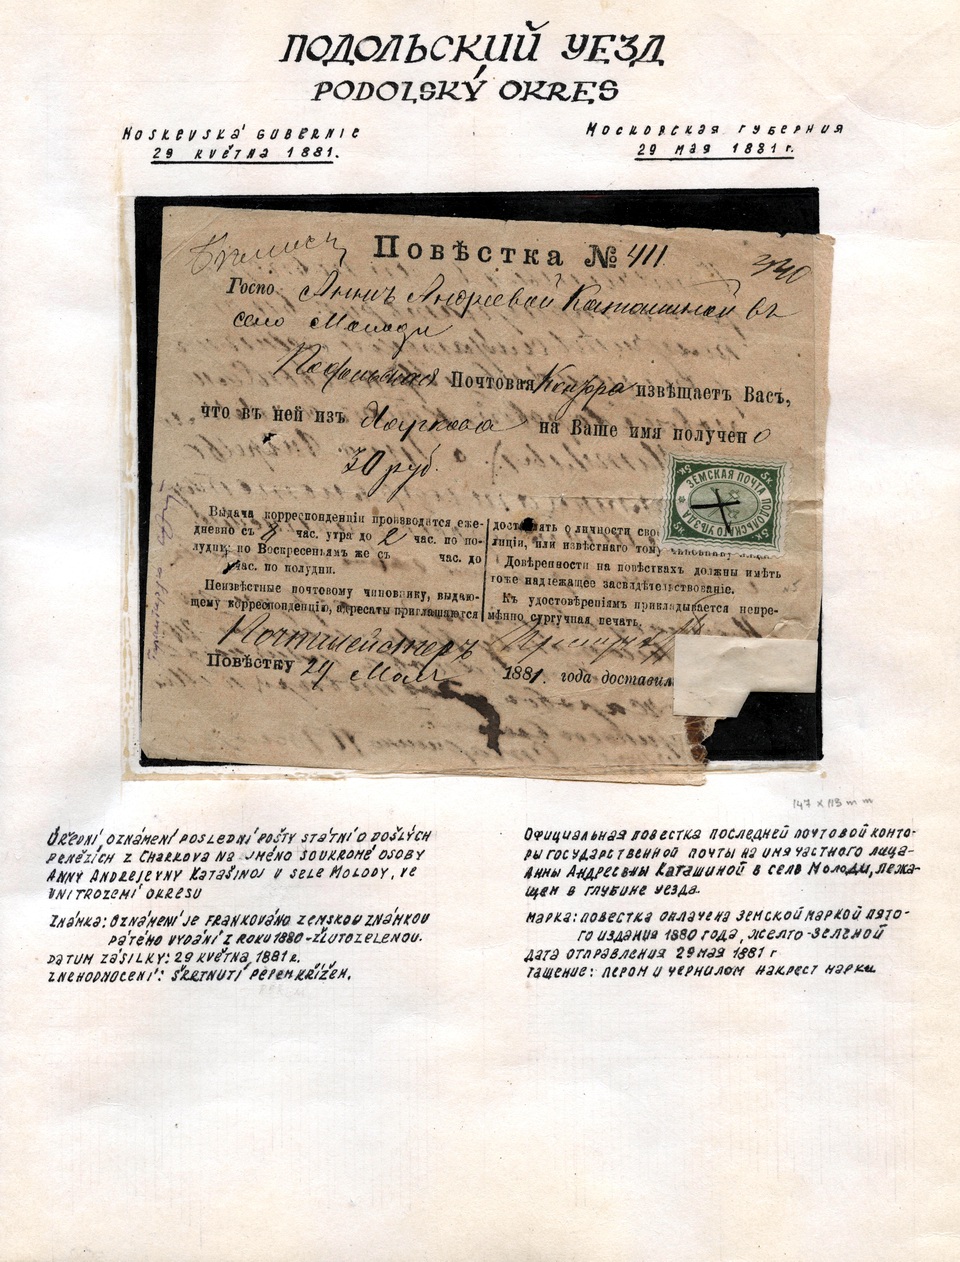 ПОДОЛЬСКИЙ УЕЗД
PODOLSKÝ OKRES
MOSKEVSKÁ GUBERNIE
29 KVĚTNA 1881.
МОСКОВСКАЯ ГУБЕРНИЯ
29 МАЯ 1881 г.
Повѣстка № 411
340
Госпо Аннѣ Андреевой Каташиной въ
село Молоди
Подольская Почтовая Контора извѣщаетъ Васъ,
что въ ней изъ Харкова на Ваше имя получено
30 руб.
5к. 5к.
ЗЕМСКАЯ ПОЧТА ПОДОЛЬСКАГО УѢЗДА
5к. 5к.
Выдача корреспонденціи производится еже-
дневно съ 8 час. утра до 2 час. по по-
лудни; по Воскресеньямъ же съ час. до
час. по полудни.
Неизвѣстные почтовому чиновнику, выдаю-
щему корреспонденцію, адресаты приглашаются
доставлять о личности сво
лиціи, или извѣстнаго тому
Довѣренности на повѣсткахъ должны имѣть
тоже надлежащее засвидѣтельствованіе.
Къ удостовѣреніямъ прикладывается непре-
мѣнно сургучная печать.
Почтмейстеръ
Повѣстку 29 Мая 1881. года доставил
147 x 113 mm
ÚŘEDNÍ OZNÁMENÍ POSLEDNÍ POŠTY STÁTNÍ O DOŠLÝCH
PENĚZÍCH Z CHARKOVA NA JMÉNO SOUKROMÉ OSOBY
ANNY ANDREJEVNY KATAŠINOJ V SELE MOLODY, VE
VNITROZEMÍ OKRESU
ZNÁMKA: OZNÁMENÍ JE FRANKOVÁNO ZEMSKOU ZNÁMKOU
PÁTÉHO VYDÁNÍ Z ROKU 1880 - ŽLUTOZELENOU.
DATUM ZÁSILKY: 29 KVĚTNA 1881 R.
ZNEHODNOCENÍ: ŠKRTNUTÍ PEREM KŘÍŽEM.
ОФИЦИАЛЬНАЯ ПОВЕСТКА ПОСЛЕДНЕЙ ПОЧТОВОЙ КОНТО-
РЫ ГОСУДАРСТВЕННОЙ ПОЧТЫ НА ИМЯ ЧАСТНОГО ЛИЦА-
АННЫ АНДРЕЕВНЫ КАТАШИНОЙ В СЕЛО МОЛОДИ, ЛЕЖА-
ЩЕМ В ГЛУБИНЕ УЕЗДА.
МАРКА: ПОВЕСТКА ОПЛАЧЕНА ЗЕМСКОЙ МАРКОЙ ПЯТО-
ГО ИЗДАНИЯ 1880 ГОДА, ЖЕЛТО-ЗЕЛЕНОЙ
ДАТА ОТПРАВЛЕНИЯ 29 МАЯ 1881 г
ГАШЕНИЕ: ПЕРОМ И ЧЕРНИЛОМ НАКРЕСТ МАРКИ.